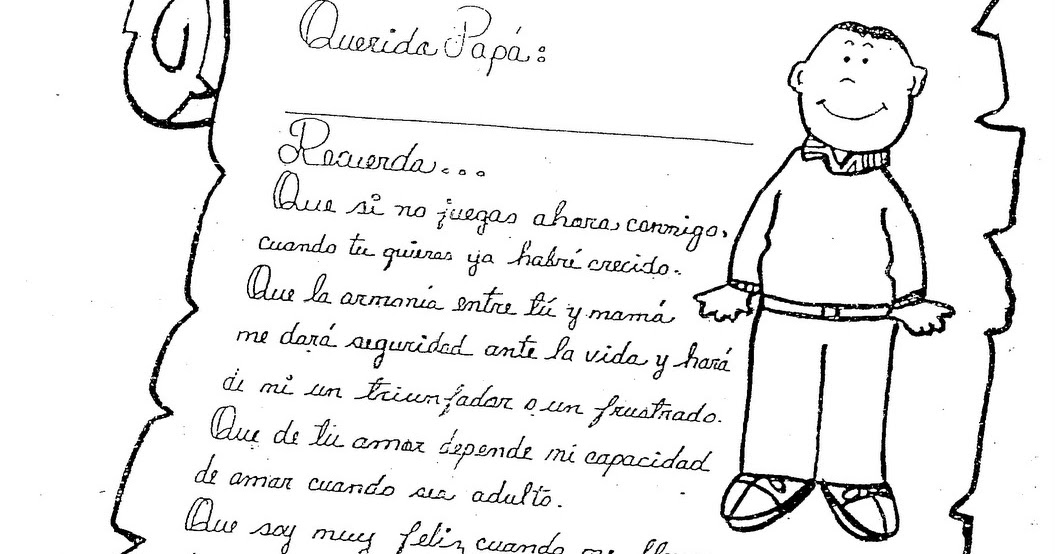 Querida Papá:
Recuerda...
Que si no juegas ahora conmigo,
cuando tu quieras ya habré crecido.
Que la armonía entre tú y mamá
me dará seguridad ante la vida y hará
de mi un triunfador o un frustrado.
Que de tu amor depende mi capacidad
de amar cuando sea adulto.
Que soy muy feliz cuando me